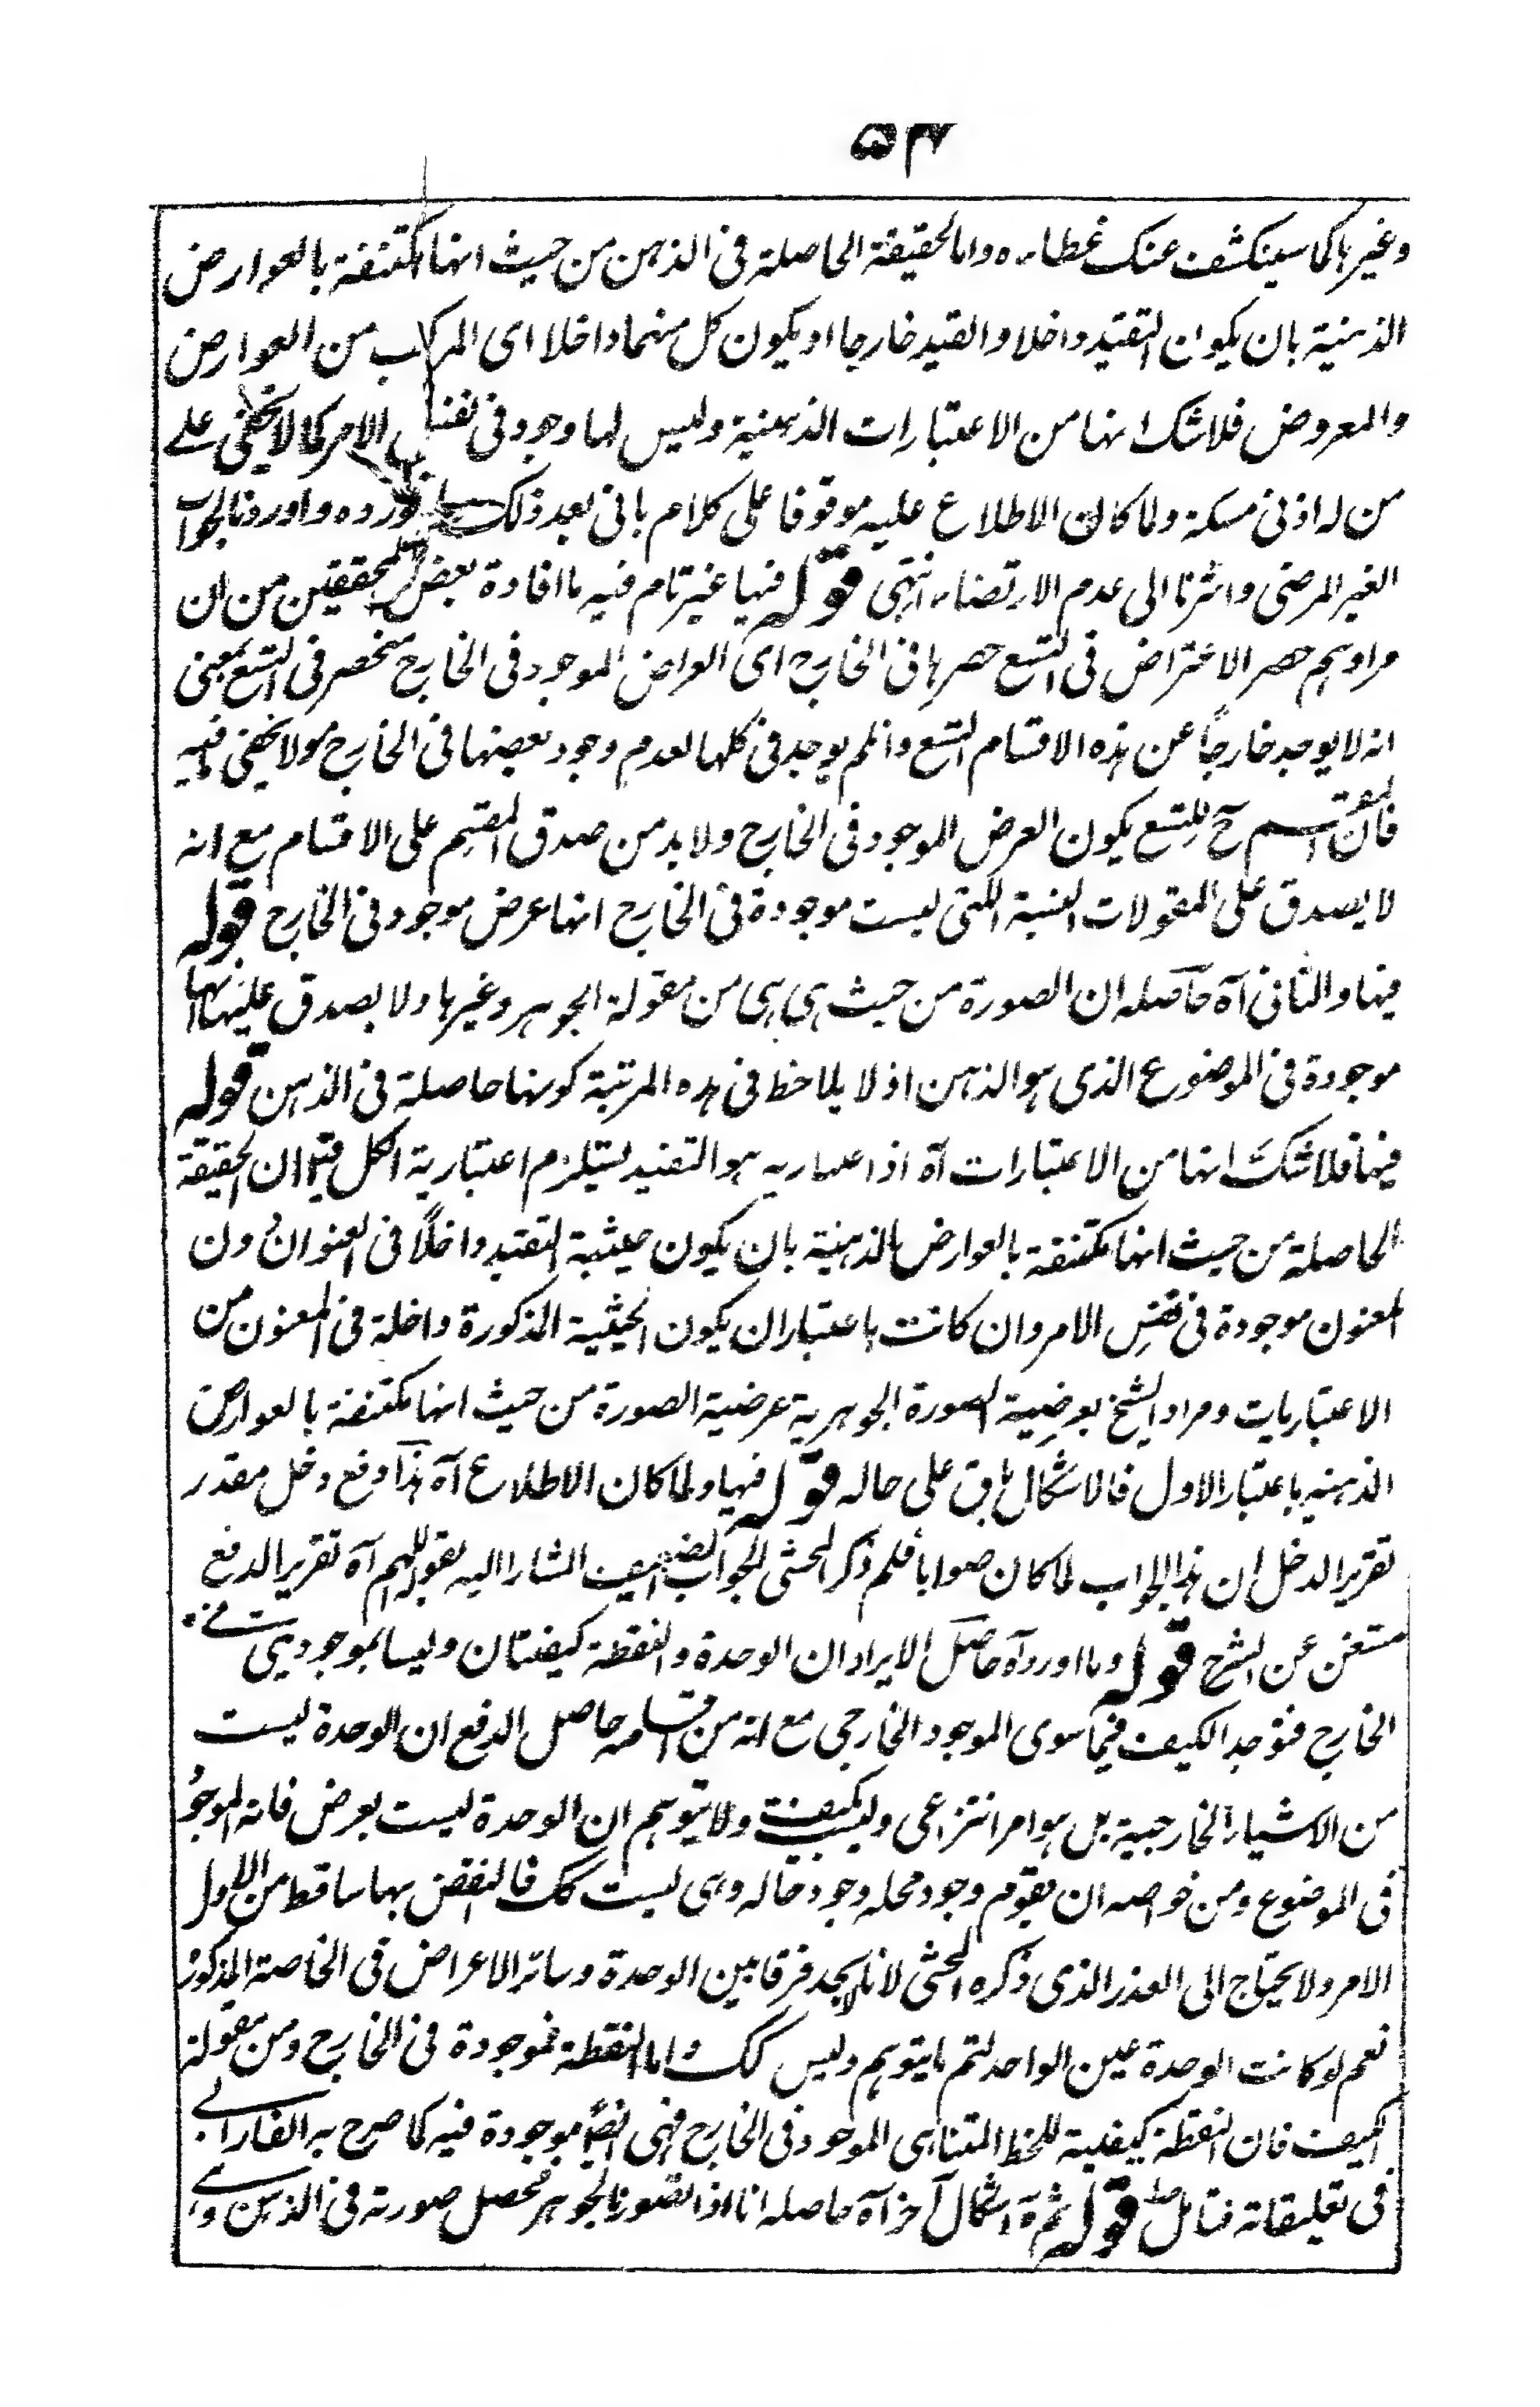 ۵۳۷
وغیرها كما سینكشف عنك غطاءه واما الحقیقة الحاصلة فی الذهن من حیث انها مكتنفة بالعوارض
الذهنیة بان یكون التقیید داخلا والقید خارجا او یكون كل منهما داخلا ای المركب من العوارض
والمعروض فلا شك انها من الاعتبارات الذهنیة ولیس لها وجود فی نفس الامر كما لا یخفی علی
من له ادنی مسكة ولما كان الاطلاع علیه موقوفا علی كلام یاتی بعد ذلك واوردنا الجواب
الغیر المرضی واشرنا الی عدم الارتضاء انتهی قوله فیها غیر تام فیه ما افادة بعض المحققین من ان
مرادهم حصر الاعتراض فی التسع حصرها فی الخارج ای العرض الموجود فی الخارج منحصر فی التسع بمعنی
انه لا یوجد خارجاً عن هذه الاقسام التسع وان لم یوجد فی كلها لعدم وجود بعضها فی الخارج ولا یخفی ما فیه
فان المقسم ح للتسع یكون العرض الموجود فی الخارج ولا بد من صدق المقسم علی الاقسام مع انه
لا یصدق علی المقولات النسبة اللتی لیست موجودة فی الخارج انها عرض موجود فی الخارج قوله
فیها والثانی آه حاصله ان الصورة من حیث هی هی من مقولة الجوهر وغیرها ولا یصدق علیها انها
موجودة فی الموضوع الذی هو الذهن اذ لا یلاحظ فی هذه المرتبة كونها حاصلة فی الذهن قوله
فیها فلا شك انها من الاعتبارات آه اذ اعتباریه هو التقیید یستلزم اعتباریة الكل فیه ان الحقیقة
الحاصلة من حیث انها مكتنفة بالعوارض الذهنیة بان یكون حیثیة التقیید داخلاً فی العنوان دون
المعنون موجودة فی نفس الامر وان كانت باعتبار ان یكون الحیثیة المذكورة داخلة فی المعنون من
الاعتباریات ومراد الشیخ بعرضیة الصورة الجوهریة عرضیة الصورة من حیث انها مكتنفة بالعوارض
الذهنیه باعتبار الاول فالاشكال باق علی حاله قوله فیها ولما كان الاطلاع آه هذا دفع دخل مقدر
تقریر الدخل ان هذا الجواب لما كان صوابا فلم ذكر المحشی الجواب الضعیف المشار الیه بقوله اللهم آه تقریر الدفع
مستغن عن الشرح قوله وما اورد آه حاصل الایراد ان الوحدة والنقطة كیفیتان ولیسا بموجودین فی
الخارج فتوجد الكیف فیما سوی الموجود الخارجی مع انه من اقسامه حاصل الدفع ان الوحدة لیست
من الاشیاء الخارجیة بل هو امر انتزاعی ولیست بكیف ولا یتوهم ان الوحدة لیست بعرض فانه الموجود
فی الموضوع ومن خواصه ان یقوم وجود محله وجود حاله وهی لیست كك فالنقض بها ساقط من اول
الامر ولا یحتاج الی العذر الذی ذكره المحشی لانا لا نجد فرقا بین الوحدة وسائر الاعراض فی الخاصة المذكورة
نعم لو كانت الوحدة عین الواحد لتم ما یتوهم ولیس كك واما النقطة فموجودة فی الخارج ومن مقولة
الكیف فان النقطة كیفیة للخط المتناهی الموجود فی الخارج فهی ایضاً موجودة فیه كما صرح به الفارابی
فی تعلیقاته فتامل قوله ثمة اشكال آخر آه حاصله انا اذا تصورنا الجوهر فحصل صورته فی الذهن و